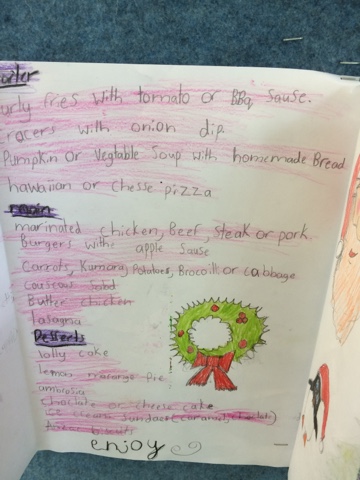 urly fries with tomato or BBq sause.
racers with onion dip.
Pumpkin or Vegtable Soup with homemade Bread
hawaiian or Chesse pizza
main
marinated chicken, Beef, Steak or pork.
Burgers with apple sause
Carrots, Kumara, Potatoes, Brocoili or cabbage
couscous salad
Butter chicken
lasagna
Desserts
lolly cake
lemon marange pie
ambrosia
choclate or cheese cake
ice cream sundaes (caramel, choclate)
biscuits
enjoy